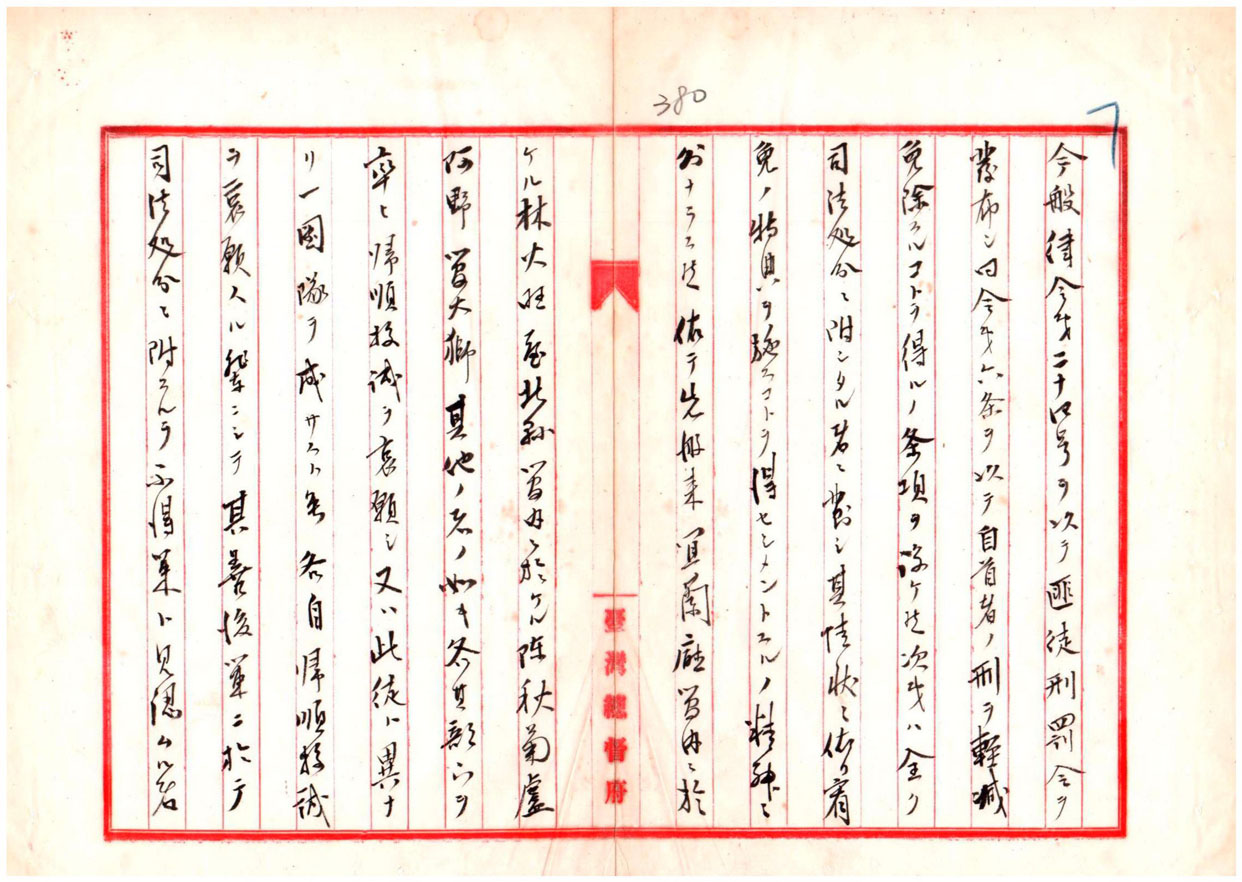 380
今般律令第二十四号ヲ以テ匪徒刑罰令ヲ
発布シ同令第六条ヲ以テ自首者ノ刑ヲ軽減
免除スルコトヲ得ルノ条項ヲ設ケ候次第ハ全ク
司法処分ニ附シタル者ニ対シ其情状ニ依リ宥
免ノ特典ヲ施スコトヲ得セシメントスルノ精神ニ
外ナラス候依テ先般来宜蘭庁管内ニ於
臺灣總督府
ケル林火旺台北県管内ニ於ケル陳秋菊盧
阿野簡大獅其他ノ者ノ如キ各其部下ヲ
率ヒ帰順投誠ヲ哀願シ又ハ此徒ト異ナ
リ一団隊ヲ成サスト雖各自帰順投誠
ヲ哀願スル輩ニシテ其善後策ニ於テ
司法処分ニ附スルヲ不得策ト見認ムル者